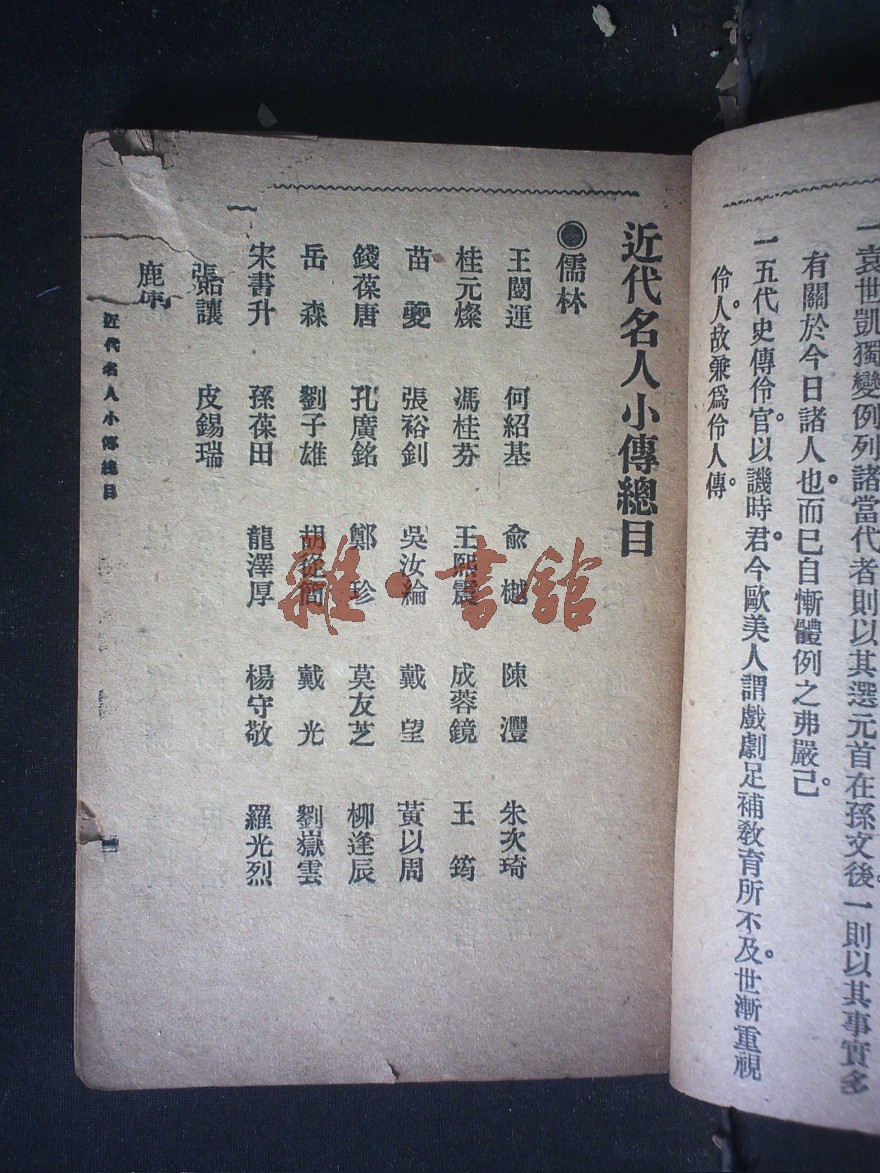 一袁世凱獨變例列諸當代者則以其選元首在孫文後一則以其事實多
有關於今日諸人也而已自慚體例之弗嚴已。
一五代史傳伶官。以譏時君。今歐美人謂戲劇足補教育所不及。世漸重視
伶人。故兼爲伶人傳。
近代名人小傳總目
儒林
王闓運 何紹基 俞樾 陳灃 朱次琦
桂元燦 馮桂芬 王熙震 成蓉鏡 王筠
苗夔 張裕釗 吳汝綸 戴望 黃以周
錢葆唐 孔廣銘 鄭珍 莫友芝 柳逢辰
岳森 劉子雄 胡從簡 戴光 劉嶽雲
宋書升 孫葆田 龍澤厚 楊守敬 羅光烈
張諧讓 皮錫瑞
鹿
近代名人小傳總目
一
雜·書館